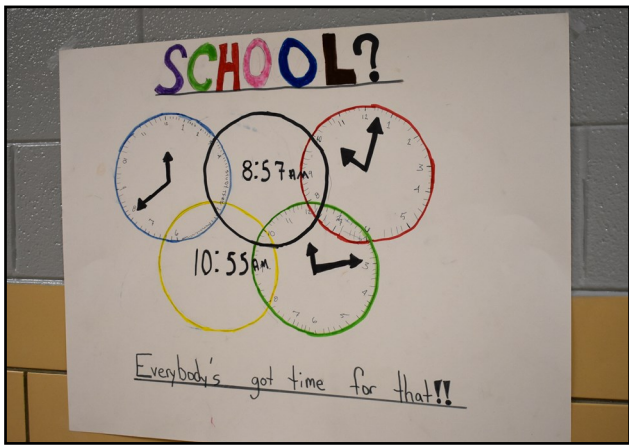 SCHOOL?
8:57 AM
10:55 AM
Everybody's got time for that!!